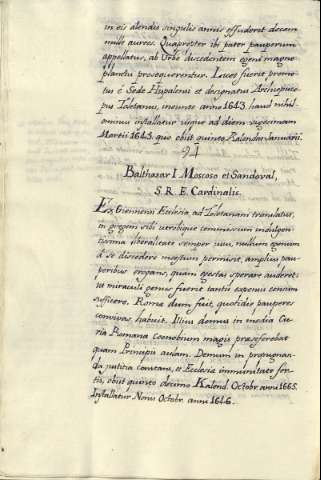 in eis alendis singulis annis effuderit decem
mille aureos. Quapropter ibi pater pauperum
appellatus, ab Urbe discedentem egeni magno
planctu prosequerentur. Licet fuerit promo-
tus è Sede Hispalensi et designatus Archiepisco-
pus Toletanus, ineunte anno 1643. haud nihil-
ominus installatur usque ad diem vigesimam
Martii 1645. quo obiit quinto Kalendas Januarii.
94
Balthasar I. Moscoso et Sandoval,
S. R. E. Cardinalis.
Ex Giennensi Ecclesia ad Toletanam translatus,
in gregem sibi utrobique commissum indulgen-
tissima liberalitate semper usus, nullum egenum
à se discedere moestum permisit, amplius pau-
peribus erogans, quam egestas sperare auderet:
ita miraculi genus fuerit tantis expensis censum
sufficere. Romæ dum fuit, quotidie pauperes
convivas habuit. Illius domus in media Cu-
ria Romana Coenobium magis præseferebat
quam Principis aulam. Demum in propugnan-
da justitia constans, et Ecclesiæ immunitate for-
tis, obiit quinto decimo Kalend. Octobr. anni 1665.
Installatur Nonis Octobr. anni 1646.